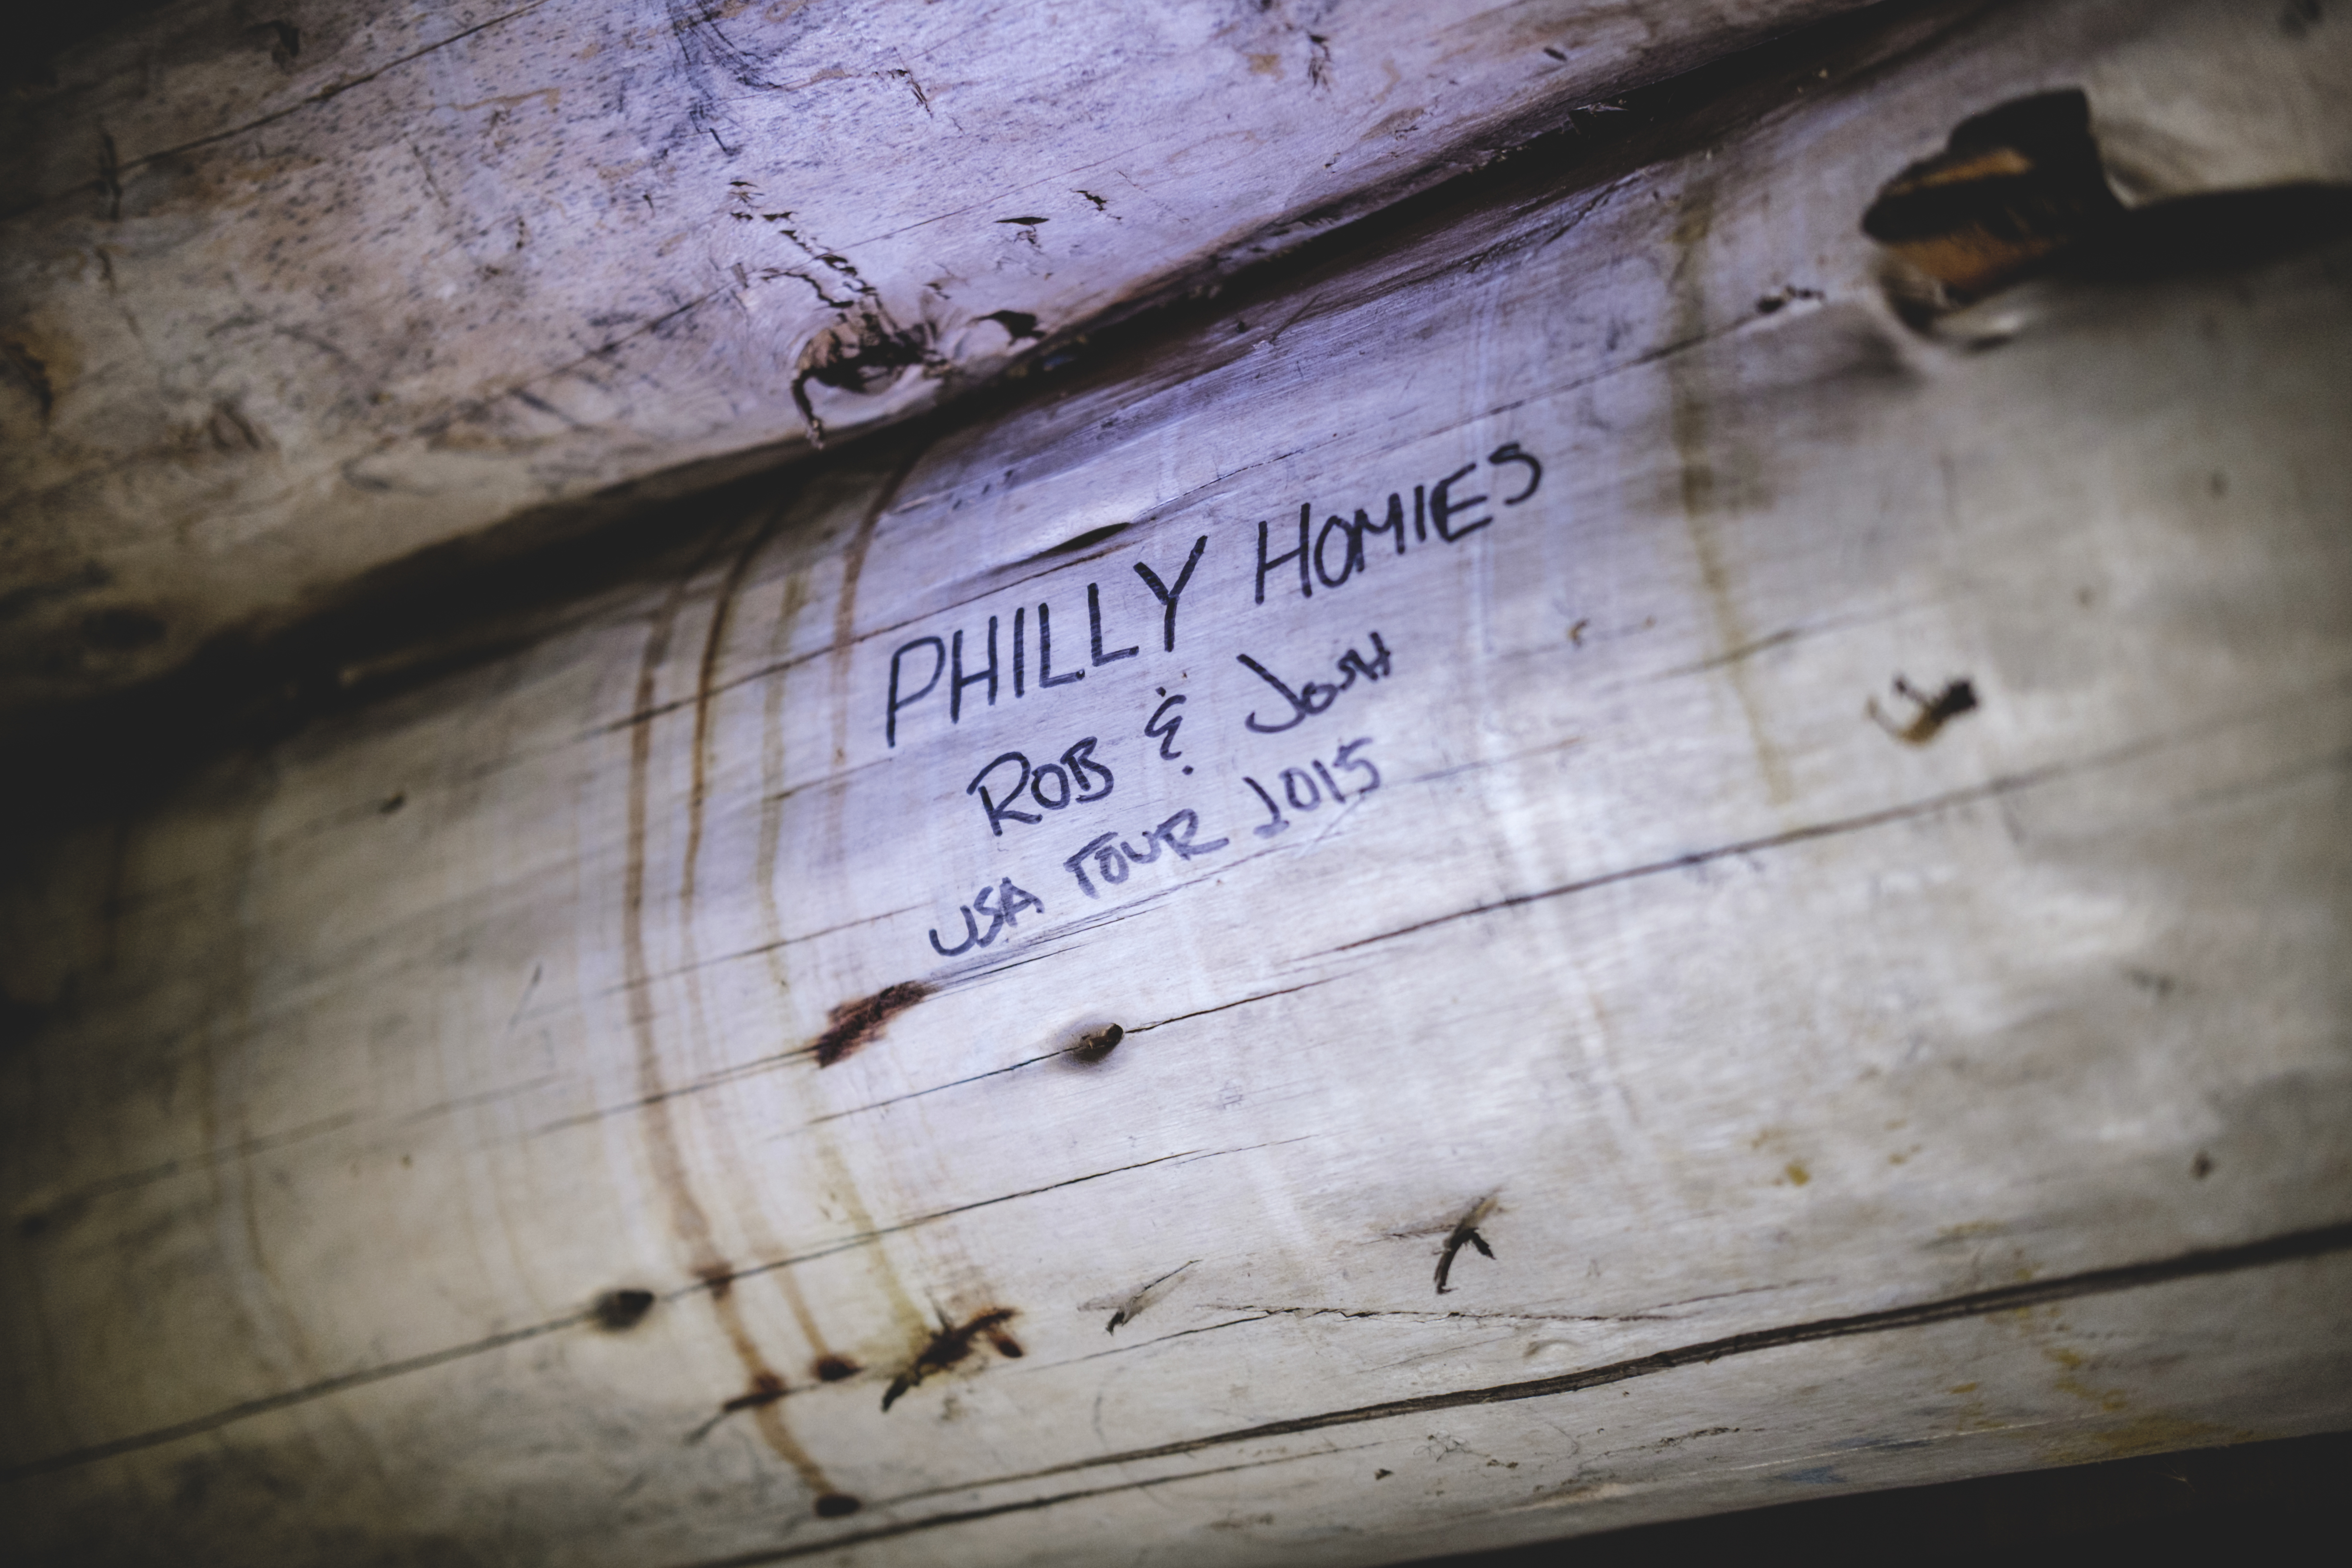 PHILLY HOMIES
ROB & JOSH
USA TOUR 2015